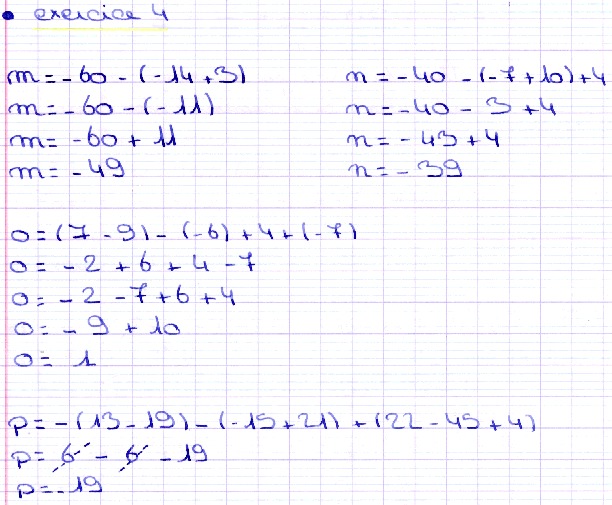 • exercice 4
m = -60 - (-14 + 3)
m = -60 - (-11)
m = -60 + 11
m = -49
n = -40 - (-7 + 10) + 4
n = -40 - 3 + 4
n = -43 + 4
n = -39
o = (7 - 9) - (-6) + 4 + (-7)
o = -2 + 6 + 4 - 7
o = -2 - 7 + 6 + 4
o = -9 + 10
o = 1
p = -(13 - 19) - (-15 + 21) + (22 - 45 + 4)
p = 6 - 6 - 19
p = -19